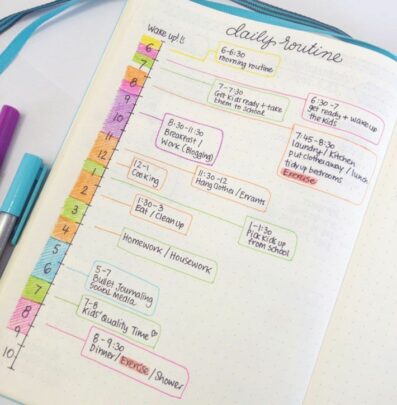 daily routine
Wake up!
6
7
8
9
10
11
12
1
2
3
4
5
6
7
8
9
10
6-6:30
morning routine
6:30-7
get ready + wake up
the kids
7-7:30
Get kids ready + take
them to school
7:45-8:30
laundry / Kitchen
put clothes away / lunch
tidy up bedrooms
Exercise
8:30-11:30
Breakfast /
Work (Blogging)
11:30-12
Hang Clothes / Errants
12-1
Cooking
1-1:30
Pick kids up
from school
1:30-3
Eat / Clean up
Homework / Housework
5-7
Bullet Journaling
Social Media
7-8
Kids' Quality Time
8-9:30
Dinner / Exercise / Shower